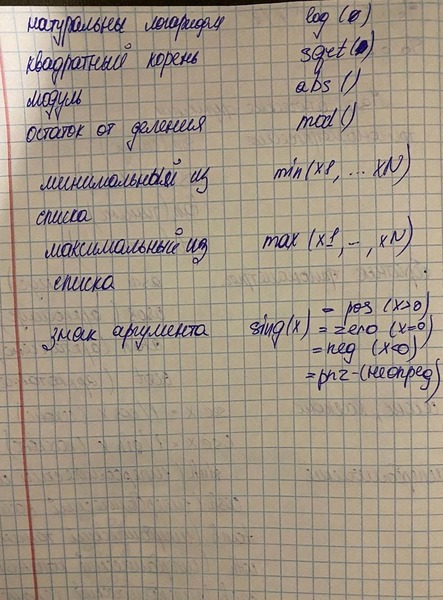 натуральны логарифм log()
квадратный корень sqet()
модуль abs()
остаток от деления mod()
минимальный из min(x1, ... xN)
списка
максимальный из max(x1, -, xN)
списка
= pos (x>0)
знак аргумента sing(x) = zero (x=0)
= neg (x<0)
= pnz - (неопред)